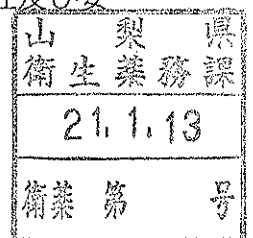 及び
山梨県
衛生薬務課
21.1.13
衛薬第 号